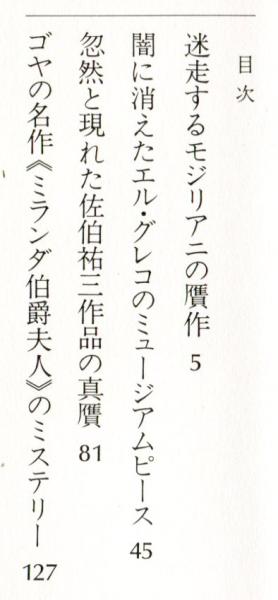 目次
迷走するモジリアニの贋作 5
闇に消えたエル・グレコのミュージアムピース 45
忽然と現れた佐伯祐三作品の真贋 81
ゴヤの名作《ミランダ伯爵夫人》のミステリー 127